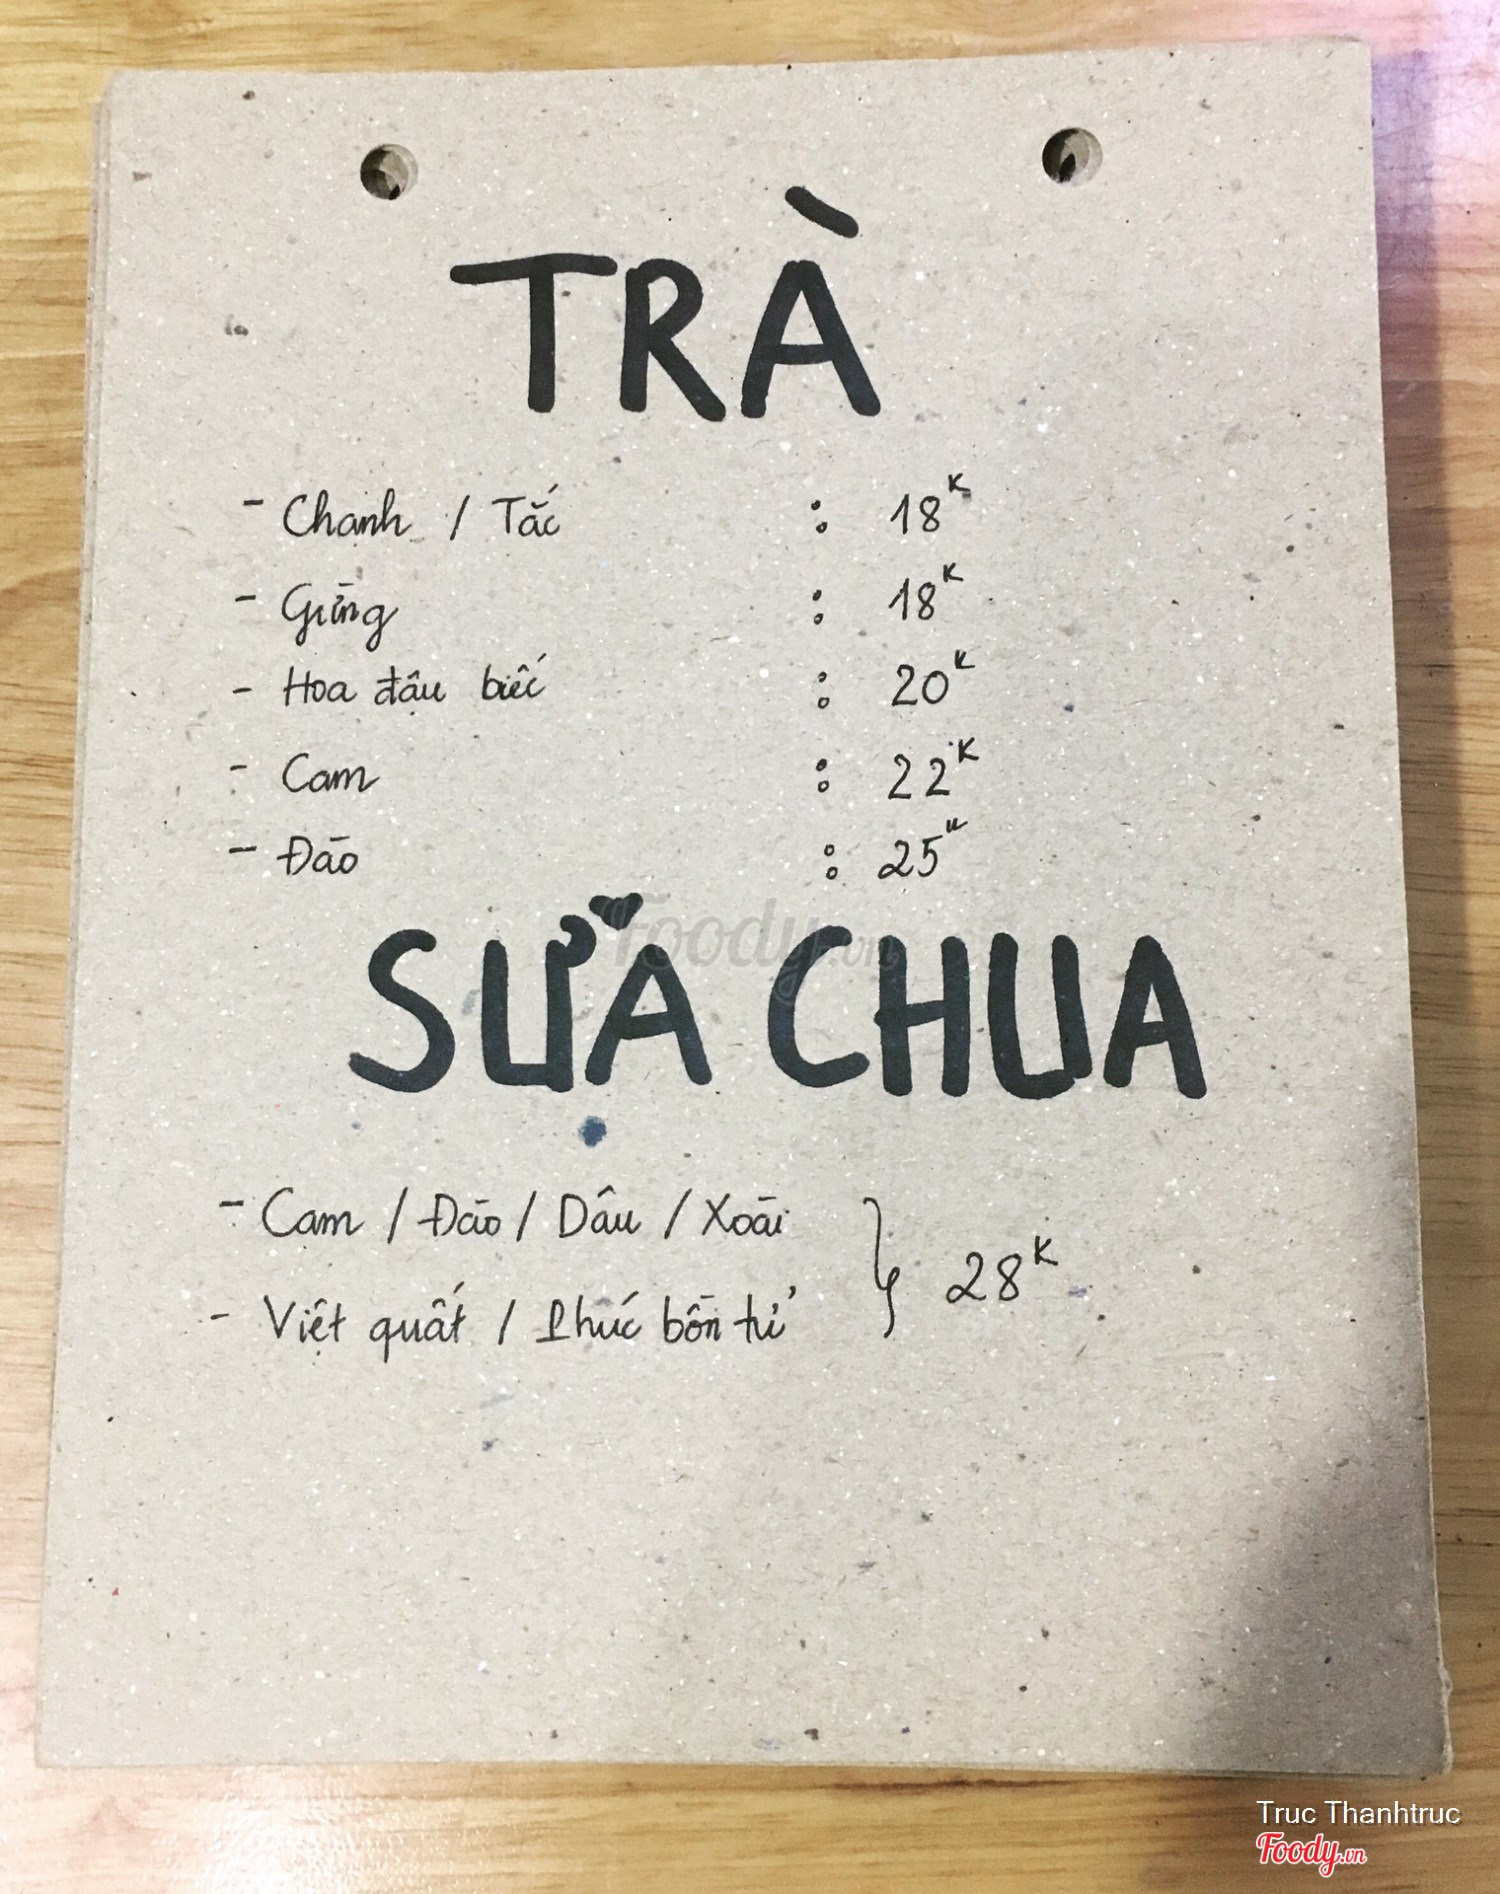 TRÀ
- Chanh / Tắc : 18K
- Gừng : 18K
- Hoa đậu biếc : 20K
- Cam : 22K
- Đào : 25K
Foody.vn
SỮA CHUA
- Cam / Đào / Dâu / Xoài
28K
- Việt quất / Phúc bồn tử
Truc Thanhtruc
Foody.vn